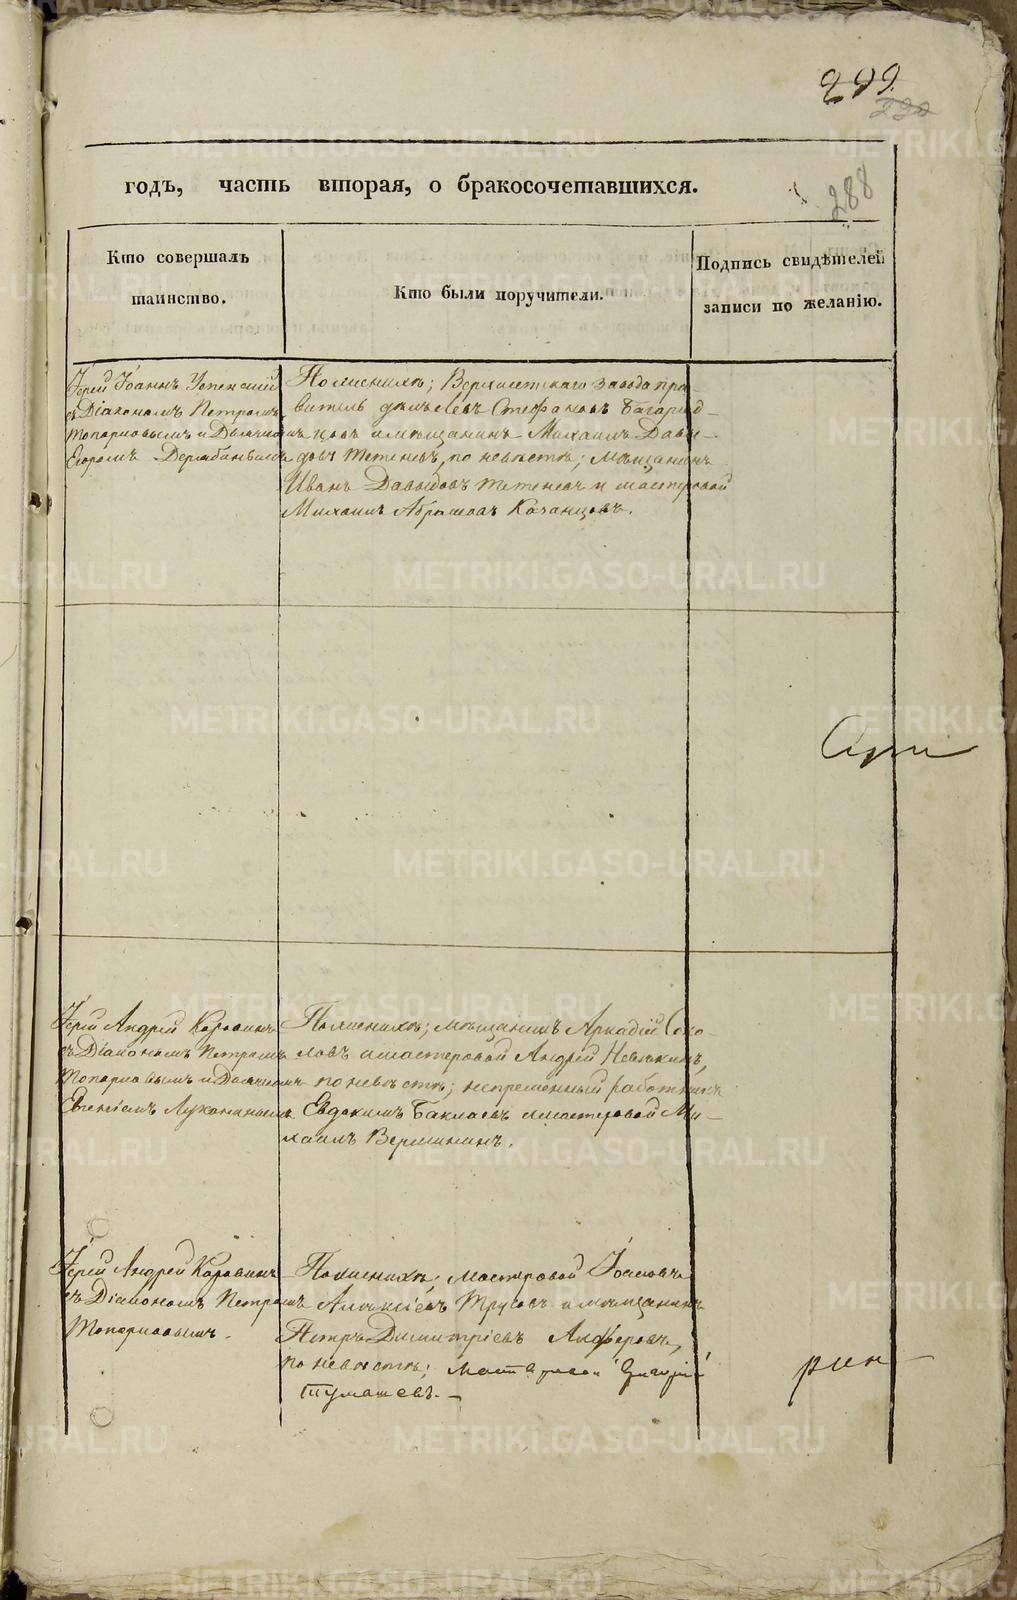 299.
220
288
годъ, часть вторая, о бракосочетавшихся.
Кто совершалъ
таинство.
Кто были поручители.
Подпись свидѣтелей
записи по желанію.
Іерей Іоаннъ Успенскій
съ Діакономъ Петромъ
Топорковымъ и Дьячкомъ
Егоромъ Дерябинымъ
По женихѣ; Верхисетскаго завода пра
витель дѣлъ Левъ Стефановъ Багаряд-
цовъ и мѣщанинъ Михаилъ Давы-
довъ Тетеневъ, по невѣстѣ; мѣщанинъ
Иванъ Давыдовъ Тетеневъ и мастеровой
Михаилъ Абрамовъ Казанцовъ.
Іерей Андрей Коровинъ
съ Діакономъ Петромъ
Топорковымъ и Дьячкомъ
Евгеніемъ Луканинымъ
По женихѣ; мѣщанинъ Аркадій Соко-
ловъ и мастеровой Андрей Невѣжинъ,
по невѣстѣ; непременный работникъ
Евдокимъ Баклаевъ и мастеровой Ми-
хаилъ Вершининъ.
Іерей Андрей Коровинъ
съ Діакономъ Петромъ
Топорковымъ.
По женихѣ; мастеровой
Алексіевъ Трусовъ и мѣщанинъ
Петръ Димитріевъ Алферовъ,
по невѣстѣ; мастеровой Григорій
Тумашевъ.
METRIKI.GASO-URAL.RU